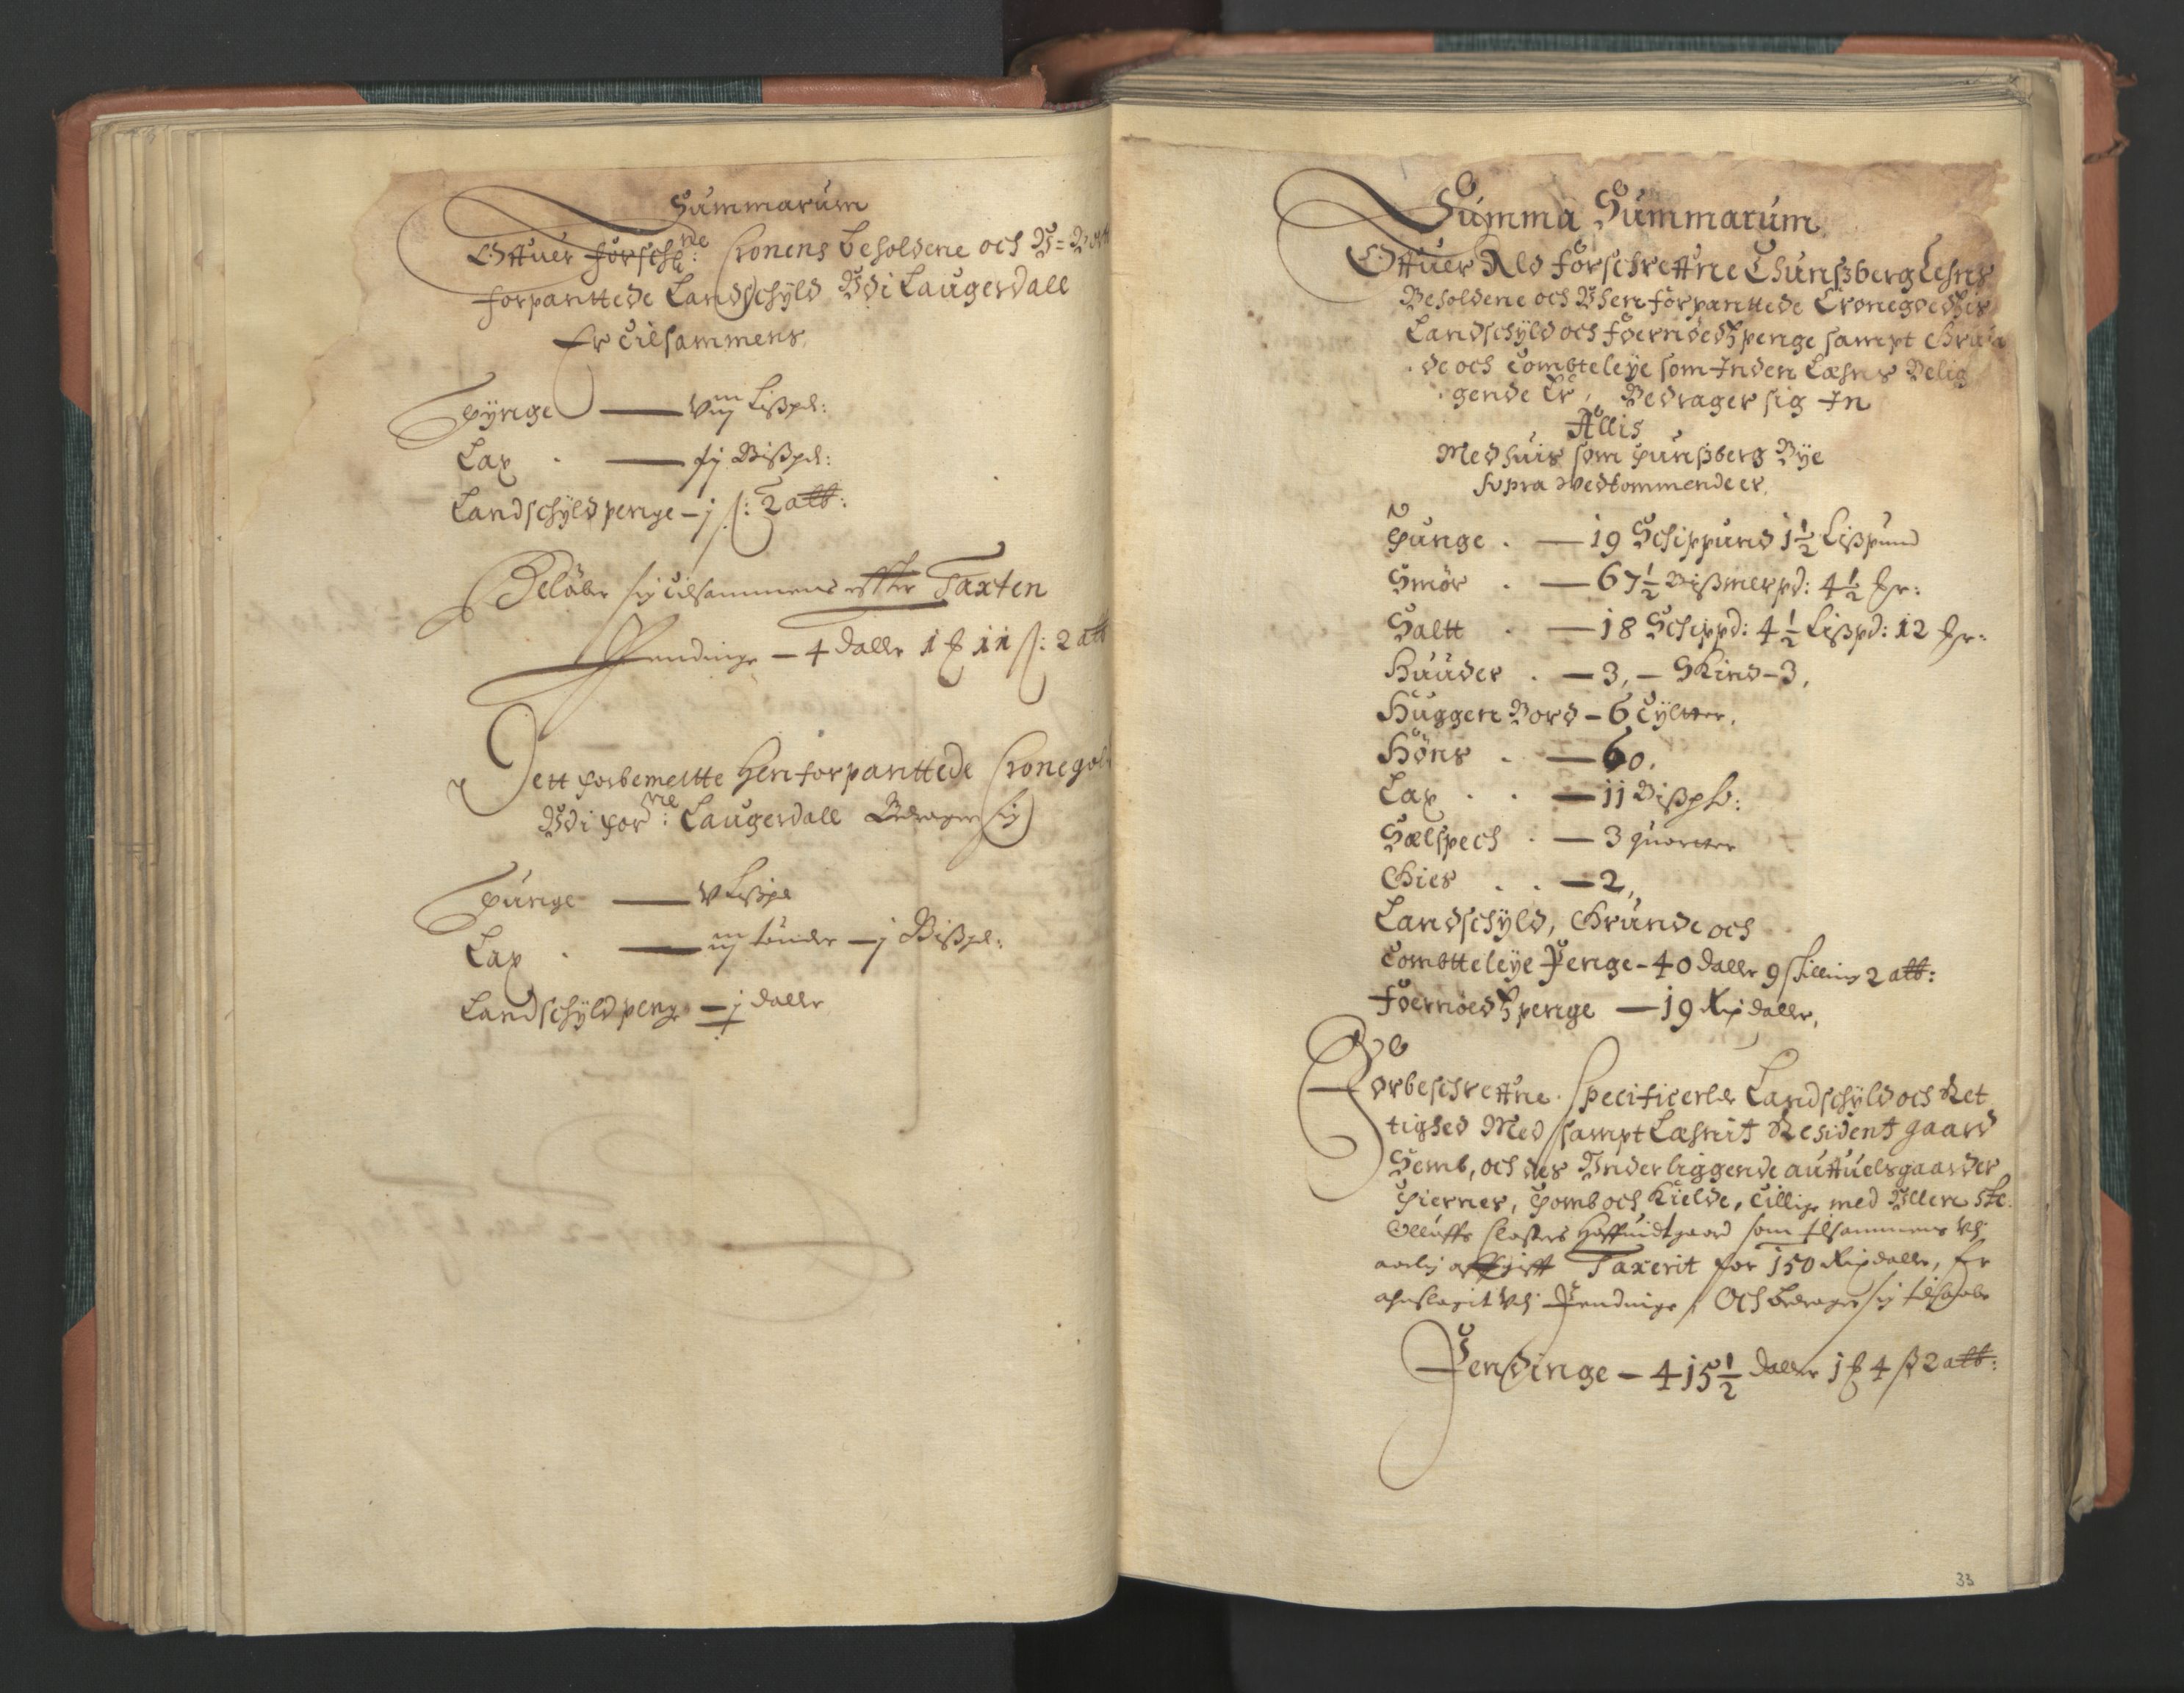 Summarum
Offuer forschne: Cronens beholdene och V=
forpanttede Landschyld Vdi Laugerdall
Er tilsammens
Tynge — viij Lißpd:
Lax . — ij Bißpd:
Landschyld penge — j ß: 2 alb:
Beløber sig tilsammens effter Taxten
Pendinge — 4 daller 1 ℔ 11 ß: 2 alb
Dett forbemeltte hen forpanttede Cronegods
Vdi forne: Laugerdall Bedrager sig
Tunge — v Lißpd
Lax . — iij tønder — j Bißpd:
Landschyld peng — j daller
Summa Summarum
Offuer Ald forschreffne Thunßberg Lehns
Beholdene och Vhen forpanttede Cronegodtzis
Landschyld och foernødtz penge sampt Grun
de och Tombteleye som Inden Læhns Belig
gende Er, Bedrager sig In
Allis
Med huis som Tunßberg Bye
supra vedkommende er.
Tunge . — 19 Schippund 1½ Lißpund
Smør . — 67½ Bißmerpd: 4½ mr:
Saltt . — 18 Schippd: 4½ Lißpd: 12 mr:
Huuder . — 3, — Skind — 3,
Huggen Bord — 6 Tylter,
Høns . — 60.
Lax . . — 11 Bißpd:
Sælspech . — 3 quarter
Gies . . — 2,
Landschyld, Grunde och
Tombtteleye Penge — 40 daller 9 skilling 2 alb:
foernoedtz penge — 19 Rix daller,
Forbeschreffne Specificerde Landschyld och Ret
tighed Med sampt Læhnit Resident gaard
Semb, och des Vnderliggende auffuelsgaarder
Tiernes, Tomb och Kielde, tillige med Allene St:
Olluffs Closters Hoffuidtgaard som tilsammens vdj
aarlig affgifft Taxerit for 150 Rixdaller, Er
ahnslagit vdj Pendinge, Och bedrager sig tilsammens
Pendinge — 415½ daller 1 ℔ 4 ß 2 alb:
33